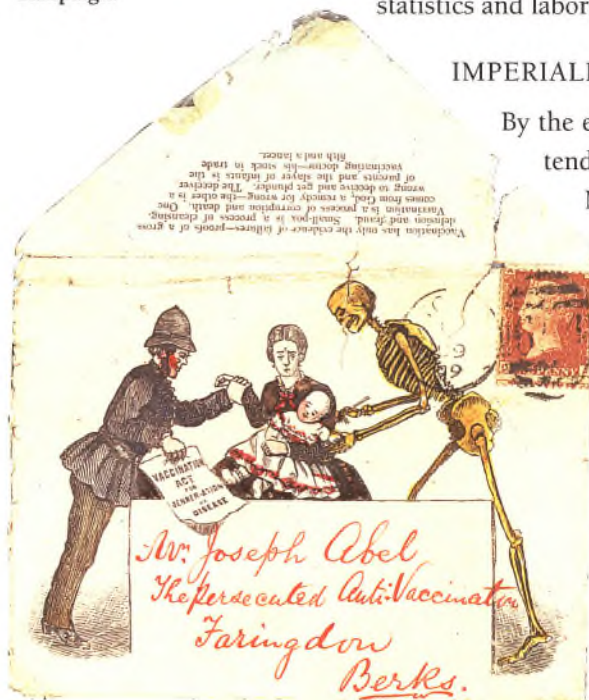 statistics and labor
IMPERIALI
By the e
tend
Vaccination has only the evidence of failures—proofs of a gross
delusion and fraud. Small-pox is a process of cleansing,
Vaccination is a process of corruption and death. One
comes from God, a remedy for wrong—the other is a
wrong to deceive and get plunder. The deceiver
of parents and the slayer of infants is the
vaccinating doctor—his stock in trade
filth and a lancet.
VACCINATION
ACT
FOR
JENNER-ATION
OF
DISEASE
Mr. Joseph Abel
The persecuted Anti-Vaccinator
Faringdon
Berks.